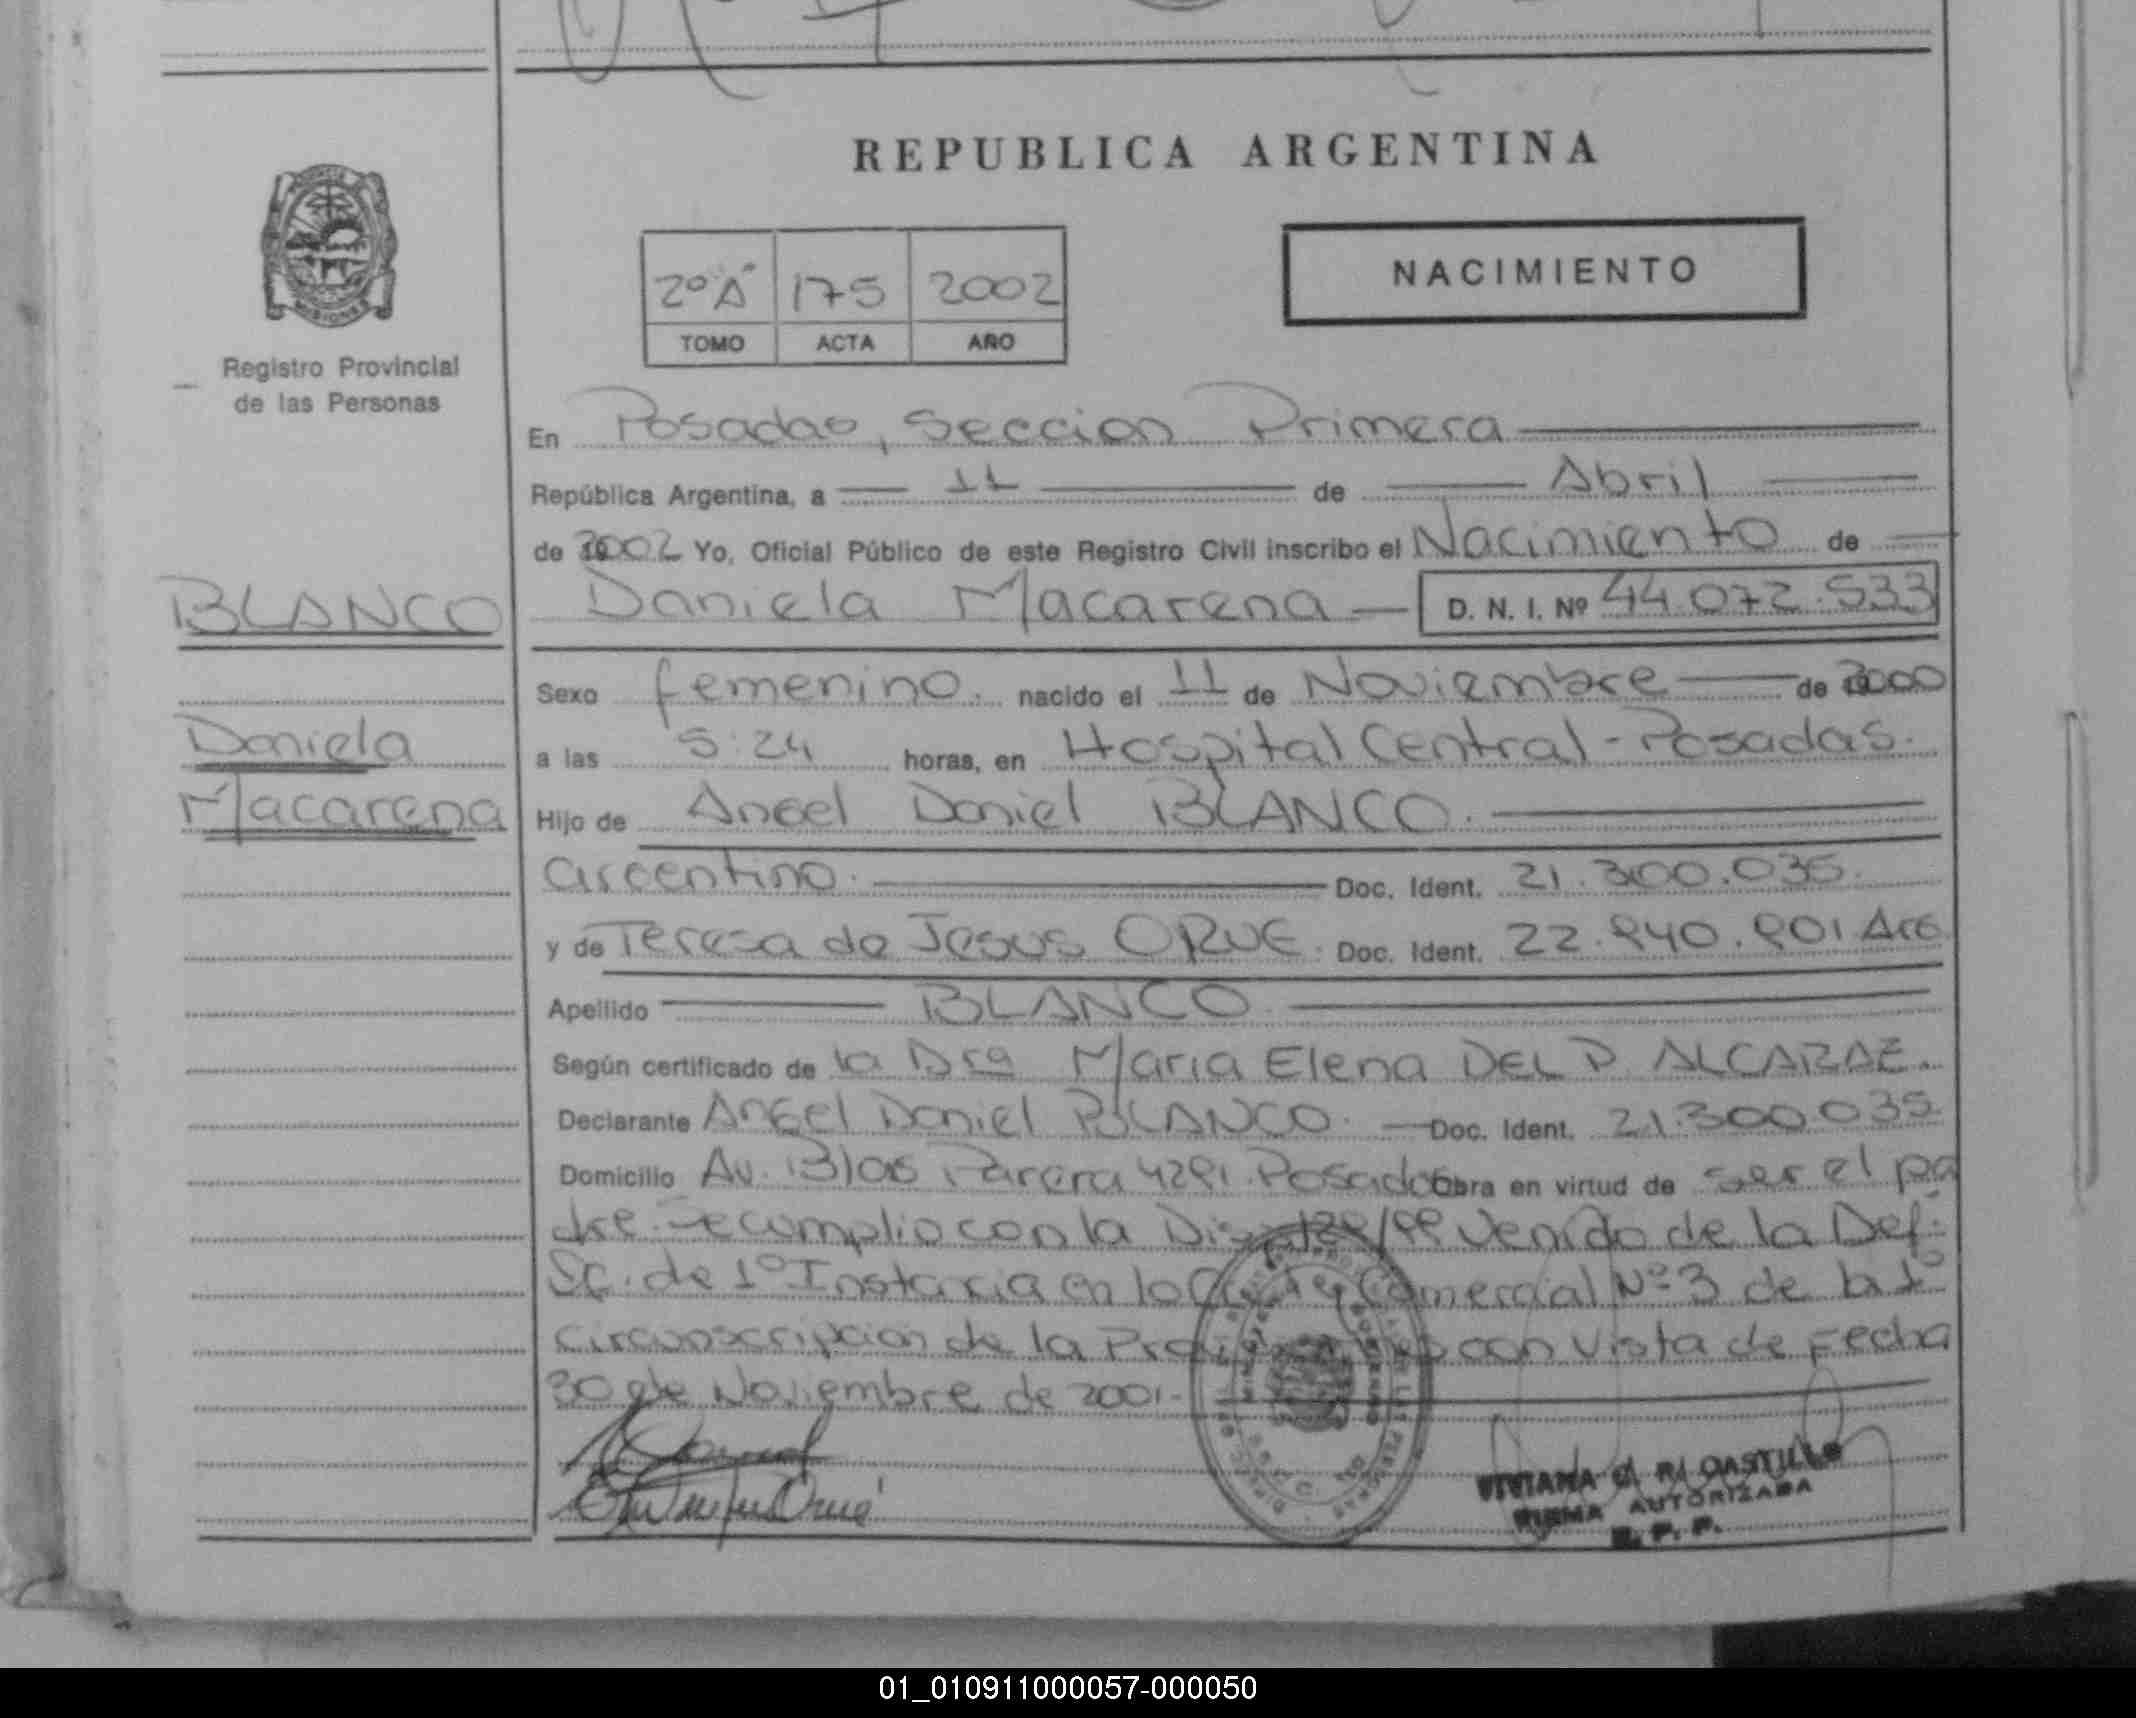 REPUBLICA ARGENTINA
2º "A" 175 2002
TOMO ACTA AÑO
NACIMIENTO
MISIONES
Registro Provincial
de las Personas
En Posadas, Seccion Primera
República Argentina, a 11 de Abril
de 2002 Yo, Oficial Público de este Registro Civil inscribo el Nacimiento de
BLANCO
Daniela Macarena D. N. I. Nº 44.072.533
Sexo femenino. nacido el 11 de Noviembre de 2000
Daniela
a las 5:24 horas, en Hospital Central - Posadas.
Macarena
Hijo de Angel Daniel BLANCO.
argentino. Doc. Ident. 21.300.035.
y de Teresa de Jesus ORUE. Doc. Ident. 22.840.801 Arg
Apellido BLANCO
Según certificado de la Dra Maria Elena DEL P. ALCARAZ.
Declarante Angel Daniel BLANCO. Doc. Ident. 21.300.035
Domicilio Av. Blas Parera 4291. Posadas Obra en virtud de ser el pa
dre. Se cumplio con la venido de la Def.
de 1º Instancia en lo Civil y Comercial Nº 3 de la 1º
Circunscripcion de la con vista de Fecha
30 de Noviembre de 2001.-
VIVIANA CASTILLO
FIRMA AUTORIZADA
R. P. P.
01_010911000057-000050